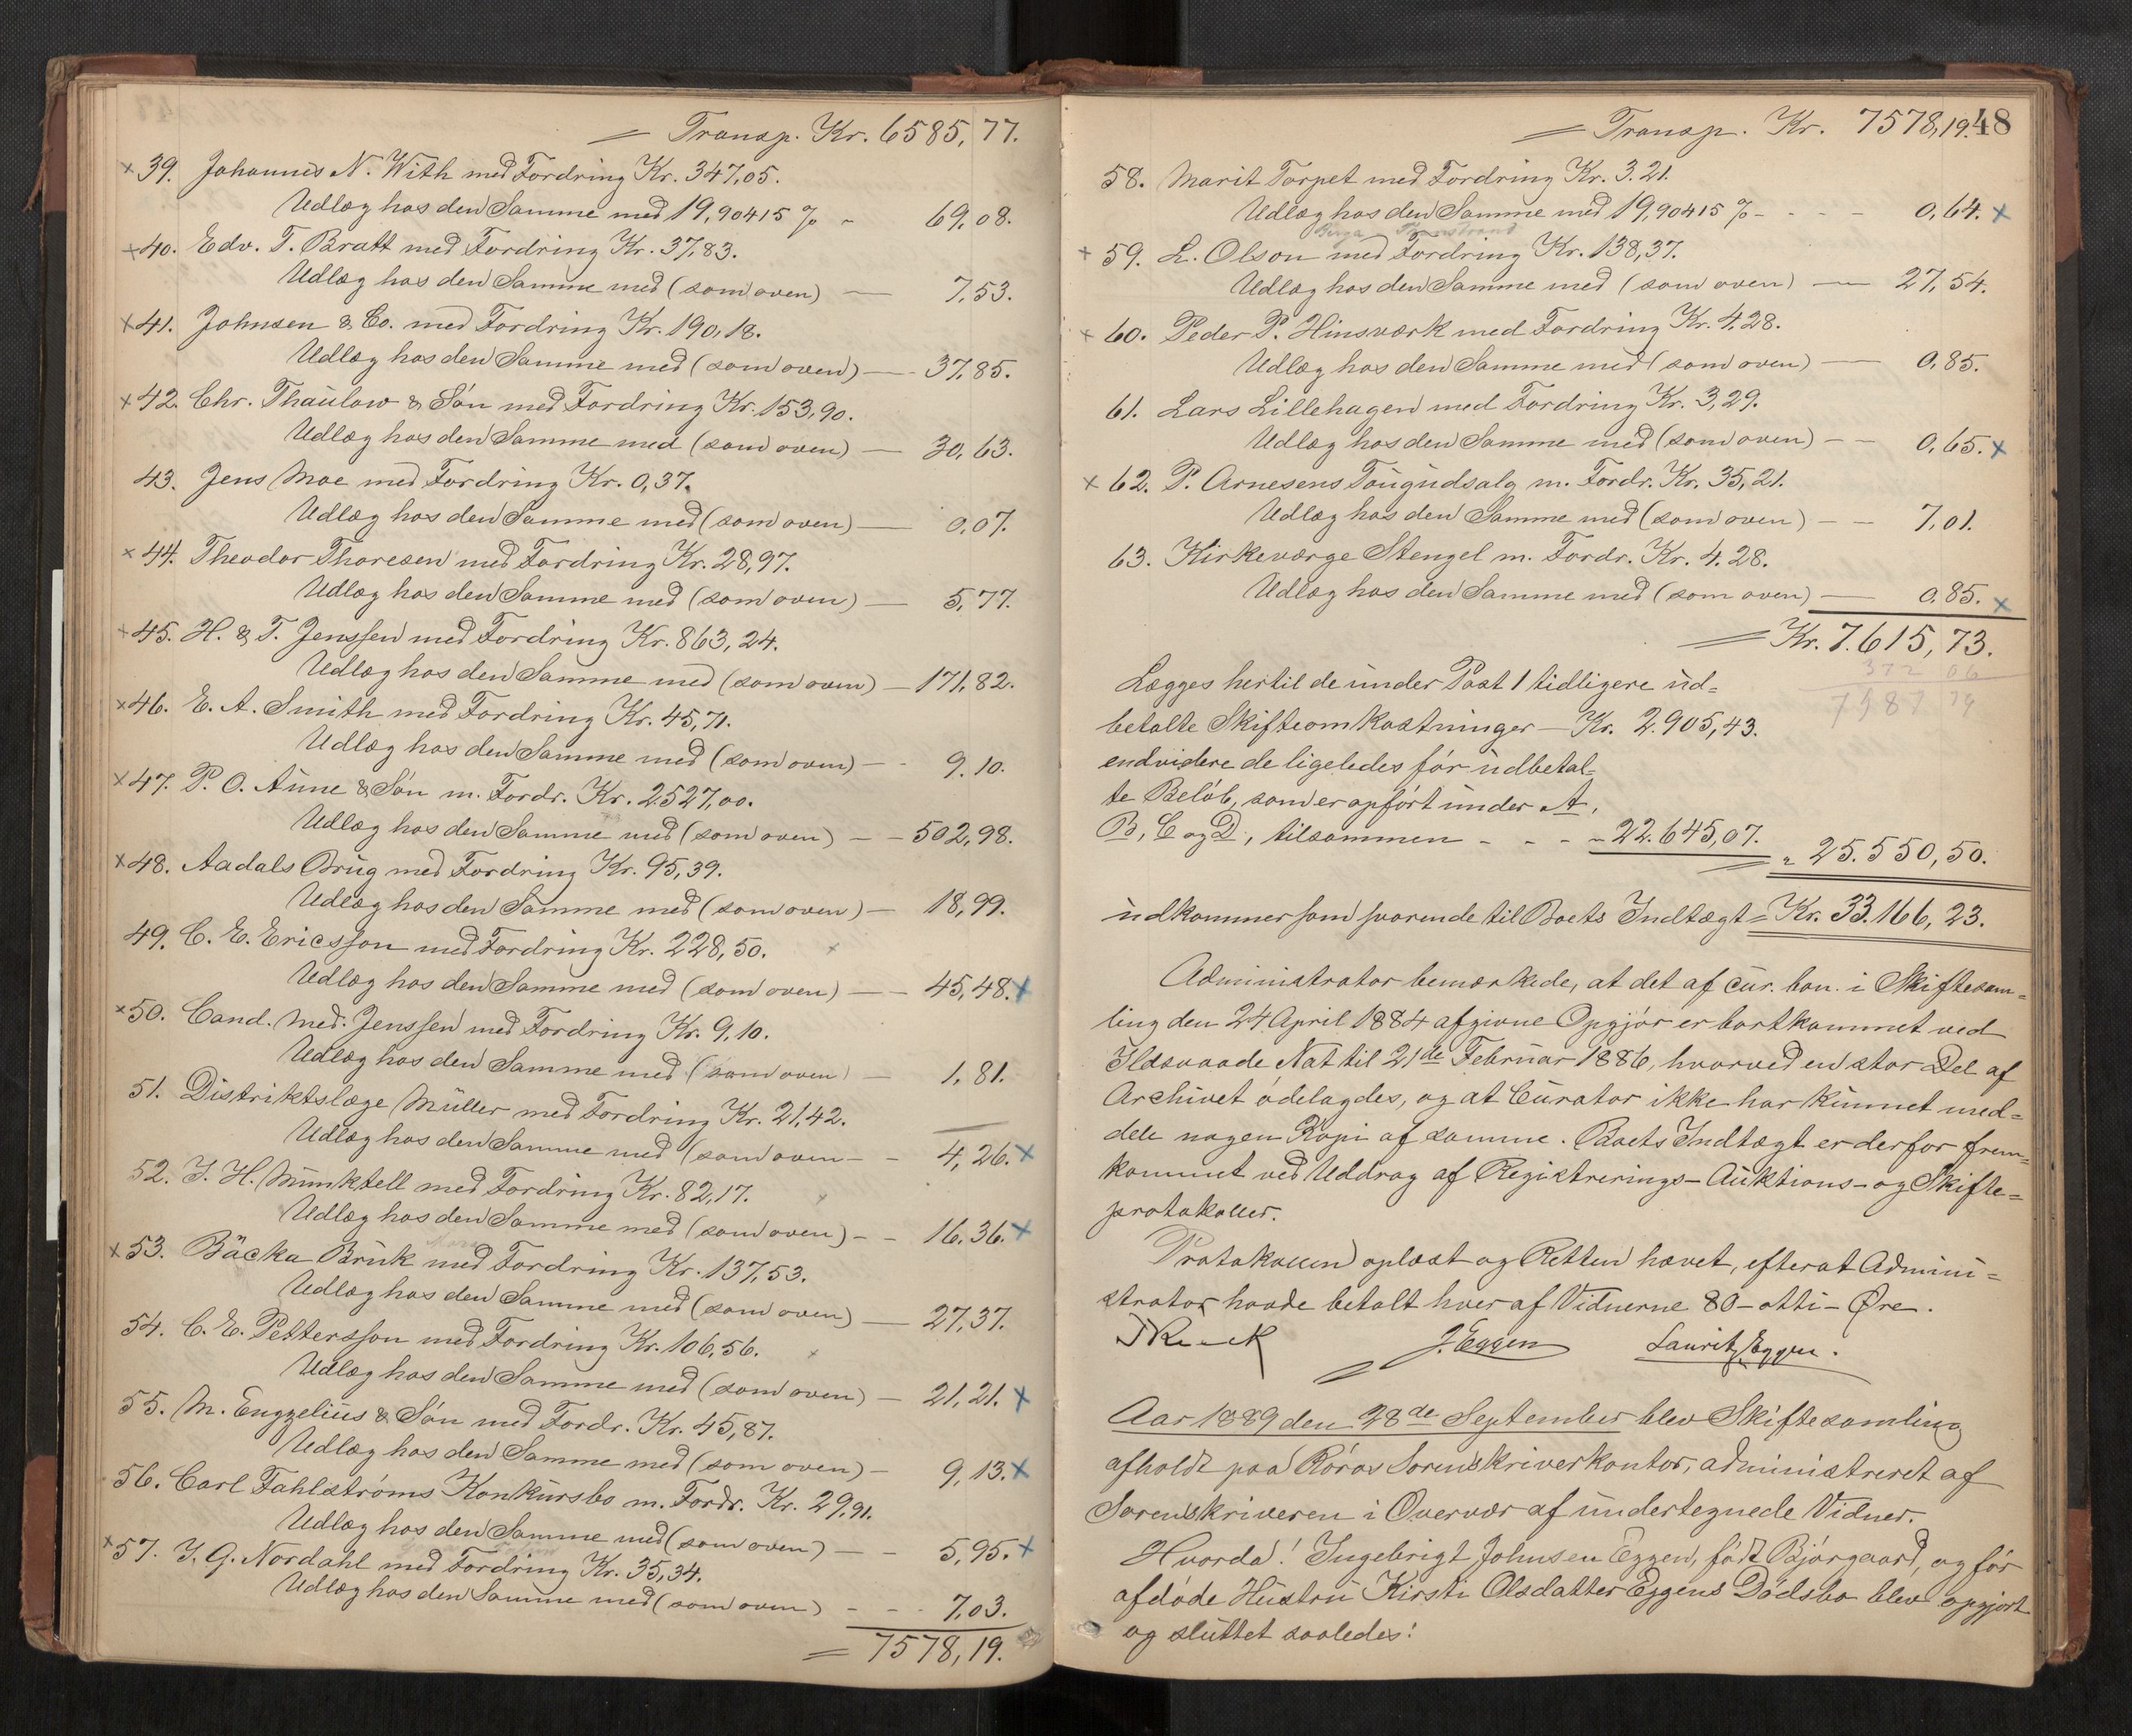 = Transp. Kr. 6585,77.
× 39. Johannes N. With med Fordring Kr. 347,05.
Udlæg hos den Samme med 19,90415 % - 69,08.
× 40. Edv. T. Bratt med Fordring Kr. 37,83.
Udlæg hos den Samme med (som oven) — 7,53.
× 41. Johnsen & Co. med Fordring Kr. 190,18.
Udlæg hos den Samme med (som oven) — 37,85.
× 42. Chr. Thaulow & Søn med Fordring Kr. 153,90.
Udlæg hos den Samme med (som oven) — 30,63.
43. Jens Moe med Fordring Kr. 0,37.
Udlæg hos den Samme med (som oven) — 0,07.
× 44. Theodor Thoresen med Fordring Kr. 28,97.
Udlæg hos den Samme med (som oven) — 5,77.
× 45. H. & T. Jenssen med Fordring Kr. 863,24.
Udlæg hos den Samme med (som oven) — 171,82.
× 46. E. A. Smith med Fordring Kr. 45,71.
Udlæg hos den Samme med (som oven) — - 9.10.
× 47. P. O. Aune & Søn m. Fordr. Kr. 2527,00.
Udlæg hos den Samme med (som oven) — - 502,98.
× 48. Aadals Brug med Fordring Kr. 95,39.
Udlæg hos den Samme med (som oven) — 18,99.
49. C. E. Ericsson med Fordring Kr. 228,50. ×
Udlæg hos den Samme med (som oven) — - 45,48. ×
× 50. Cand. Med. Jenssen med Fordring Kr. 9,10.
Udlæg hos den Samme med (som oven) — 1,81.
51. Distriktslæge Müller med Fordring Kr. 21,42.
Udlæg hos den Samme med (som oven - - 4,26. ×
52. J. H. Munktell med Fordring Kr. 82,17.
Udlæg hos den Samme med (som oven) - - 16,36. ×
× 53. Bäcka Bruk med Fordring Kr. 137,53.
Udlæg hos den Samme med (som oven) — 27,37.
54. C. E. Pettersson med Fordring Kr. 106,56. ×
Udlæg hos den Samme med (som oven) — 21,21. ×
55. M. Engzelius & Søn med Fordr. Kr. 45,87.
Udlæg hos den Samme med (som oven) - 9,13. ×
56. Carl Fahlstrøms Konkursbo m. Fordr. Kr. 29,91.
Udlæg hos den Samme med (som oven) — - 5,95. ×
× 57. J. G. Nordahl med Fordring Kr. 35,34.
Udlæg hos den Samme med (som oven) - - - 7,03.
= 7578,19.
= Transp. Kr. 7578,19. 48
58. Marit Torpet med Fordring Kr. 3.21.
Udlæg hos den Samme med 19,90415 % - - - 0,64. ×
× 59. L. Olson med Fordring Kr. 138,37.
Udlæg hos den Samme med (som oven) — 27,54.
× 60. Peder P. Hinsværk med Fordring Kr. 4,28.
Udlæg hos den Samme med (som oven) — 0,85.
61. Lars Lillehagen med Fordring Kr. 3,29.
Udlæg hos den Samme med (som oven) - - 0,65. ×
× 62. P. Arnesens Tougudsalg m. Fordr. Kr. 35,21.
Udlæg hos den Samme med (som oven) - - 7,01.
63. Kirkeværge Stengel m. Fordr. Kr. 4.28.
Udlæg hos den Samme med (som oven) — 0,85. ×
= Kr. 7.615,73.
372 06
7987 79
Lægges hertil de under Post 1 tidligere ud=
betalte Skifteomkostninger — Kr. 2.905,43.
endvidere de ligeledes før udbetal=
te Beløb, som er opført under A,
B, C og D, tilsammen - - - „ 22.645,07.
= „ 25.550,50.
udkommer som svarende til Boets Indtægt = Kr. 33.166,23.
Administrator bemærkede, at det af cur. bon. i Skiftesam=
ling den 24 April 1884 afgivne Opgjør er bortkommet ved
Ildsvaade Nat til 21de Februar 1886, hvorved en stor Del af
Archivet ødelagdes, og at Curator ikke har kunnet med=
dele nogen Kopi af samme. Boets Indtægt er derfor frem=
kommet ved Uddrag af Registrerings- Auktions- og Skifte=
protokoller.
Protokollen oplæst og Retten hævet, efterat Admini=
strator havde betalt hver af Vidnerne 80 - otti - Øre.
J. Eggen Lauritz Eggen.
Aar 1889 den 28de September blev Skiftesamling
afholdt paa Røros Sorenskriverkontor, administreret af
Sorenskriveren i Overvær af undertegnede Vidner.
Hvorda! Ingebrigt Johnsen Eggen, født Bjørgaard, og før
afdøde Hustru Kirsti Olsdatter Eggens Dødsbo blev opgjort
og sluttet saaledes: